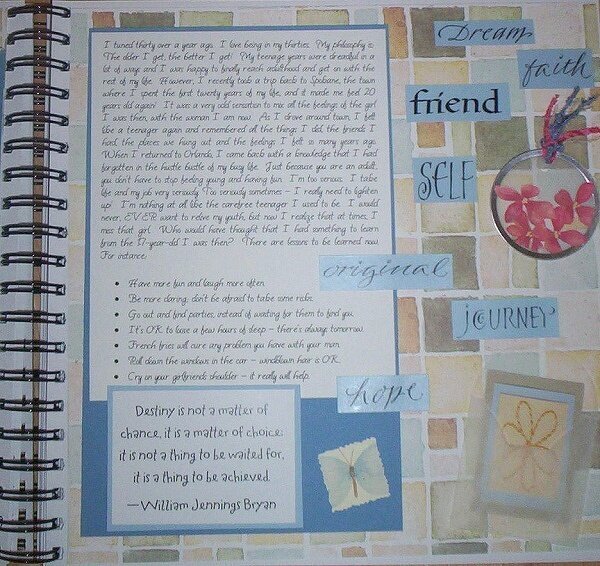 I turned thirty over a year ago. I love being in my thirties. My philosophy is:
The older I get, the better I get! My teenage years were dreadful in a
lot of ways and I was happy to finally reach adulthood and get on with the
rest of my life. However, I recently took a trip back to Spokane, the town
where I spent the first twenty years of my life, and it made me feel 20
years old again! It was a very odd sensation to mix all the feelings of the girl
I was then, with the woman I am now. As I drove around town, I felt
like a teenager again and remembered all the things I did, the friends I
had, the places we hung out and the feelings I felt so many years ago.
When I returned to Orlando, I came back with a knowledge that I had
forgotten in the hustle bustle of my busy life. Just because you are an adult,
you don't have to stop feeling young and having fun. I'm too serious. I take
life and my job very seriously. Too seriously sometimes – I really need to lighten
up! I'm nothing at all like the carefree teenager I used to be. I would
never, EVER want to relive my youth, but now I realize that at times, I
miss that girl. Who would have thought that I had something to learn
from the 17-year-old I was then? There are lessons to be learned now.
For instance:
• Have more fun and laugh more often.
• Be more daring, don't be afraid to take some risks.
• Go out and find parties, instead of waiting for them to find you.
• It's OK to loose a few hours of sleep – there's always tomorrow.
• French fries will cure any problem you have with your man.
• Roll down the windows in the car – windblown hair is OK.
• Cry on your girlfriends shoulder – it really will help.
Destiny is not a matter of
chance, it is a matter of choice;
it is not a thing to be waited for,
it is a thing to be achieved.
—William Jennings Bryan
Dream
faith
friend
SELF
original
JOURNEY
hope